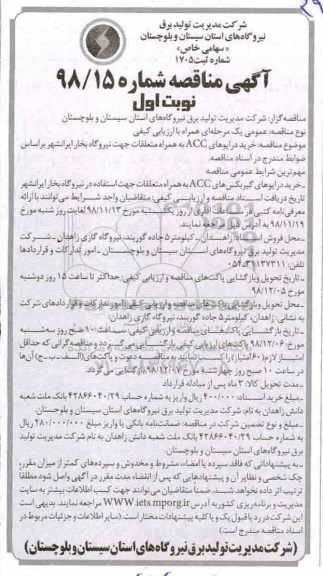 شرکت مدیریت تولید برق
نیروگاه‌های استان سیستان و بلوچستان
«سهامی خاص»
شماره ثبت ۱۷۰۵
آگهی مناقصه شماره ۹۸/۱۵
نوبت اول
مناقصه‌گزار: شرکت مدیریت تولید برق نیروگاه‌های استان سیستان و بلوچستان
نوع مناقصه: عمومی یک مرحله‌ای همراه با ارزیابی کیفی
موضوع مناقصه: خرید درایوهای ACC به همراه متعلقات جهت نیروگاه بخار ایرانشهر براساس
ضوابط مندرج در اسناد مناقصه.
مهم‌ترین شرایط عمومی مناقصه
ـ خرید درایوهای گیربکس‌های ACC به همراه متعلقات جهت استفاده در نیروگاه بخار ایرانشهر
تاریخ دریافت اسناد مناقصه و ارزیابی کیفی: متقاضیان واجد شرایط می‌توانند با ارائه
معرفی‌نامه کتبی از روز یکشنبه مورخ ۹۸/۱۱/۱۳ لغایت روز شنبه مورخ
۹۸/۱۱/۱۹ به آدرس ذیل مراجعه نمایند.
ـ محل فروش اسناد: زاهدان ـ کیلومتر ۵ جاده گوربند، نیروگاه گازی زاهدان ـ شرکت
مدیریت تولید برق نیروگاه‌های استان سیستان و بلوچستان ـ امور تدارکات و قراردادها
ـ تاریخ تحویل و بازگشایی پاکت‌های مناقصه و ارزیابی کیفی: حداکثر تا ساعت ۱۵ روز دوشنبه
مورخ ۹۸/۱۲/۰۵
ـ محل تحویل و بازگشایی پاکت‌های مناقصه و ارزیابی کیفی: امور تدارکات و قراردادهای شرکت
به نشانی زاهدان، کیلومتر ۵ جاده گوربند، نیروگاه گازی زاهدان.
ـ تاریخ بازگشایی پاکت‌های مناقصه و ارزیابی کیفی: ساعت ۱۰ صبح روز سه‌شنبه
مورخ ۹۸/۱۲/۰۶ پاکت‌های ارزیابی کیفی بازگشایی می‌گردد و مناقصه‌گرانی که حداقل
امتیاز لازم (۶۰ امتیاز) را کسب نمایند به مناقصه دعوت و پاکت‌های (الف ـ ب ـ ج) آن‌ها
در ساعت ۱۰ صبح روز چهارشنبه مورخ ۹۸/۱۲/۰۷ بازگشایی می‌گردد.
ـ مدت تحویل کالا: ۳ ماه پس از مبادله قرارداد
ـ مبلغ خرید اسناد: ۴۰۰/۰۰۰ ریال واریز به شماره حساب ۴۲۸۶۶۰۴۰/۲۹ بانک ملت شعبه
دانش زاهدان به نام: شرکت مدیریت تولید برق نیروگاه‌های استان سیستان و بلوچستان.
ـ مبلغ و نوع تضمین شرکت در مناقصه: ضمانت‌نامه بانکی یا واریز مبلغ ۲۸۰/۰۰۰/۰۰۰ ریال
به شماره حساب ۴۲۸۶۶۰۴۰/۲۹ بانک ملت شعبه دانش زاهدان به نام شرکت مدیریت تولید
برق نیروگاه‌های استان سیستان و بلوچستان.
ـ به پیشنهاداتی که فاقد سپرده یا امضاء، مشروط و مخدوش و سپرده‌های کمتر از میزان مقرر،
چک شخصی و نظایر آن و پیشنهادهایی که پس از انقضاء مدت مقرر در آگهی واصل شود مطلقا
ترتیب اثر داده نخواهد شد. ضمنا متقاضیان می‌توانند جهت کسب اطلاعات بیشتر به سایت
مدیریت و برنامه‌ریزی کشور به آدرس WWW.iets mporg.ir مراجعه نمایند. بدیهی است
این شرکت در رد یا قبول یک و یا کلیه پیشنهادات مختار است. (سایر اطلاعات و جزئیات مربوط در
اسناد مناقصه مندرج است)
(شرکت مدیریت تولید برق نیروگاه‌های استان سیستان و بلوچستان)